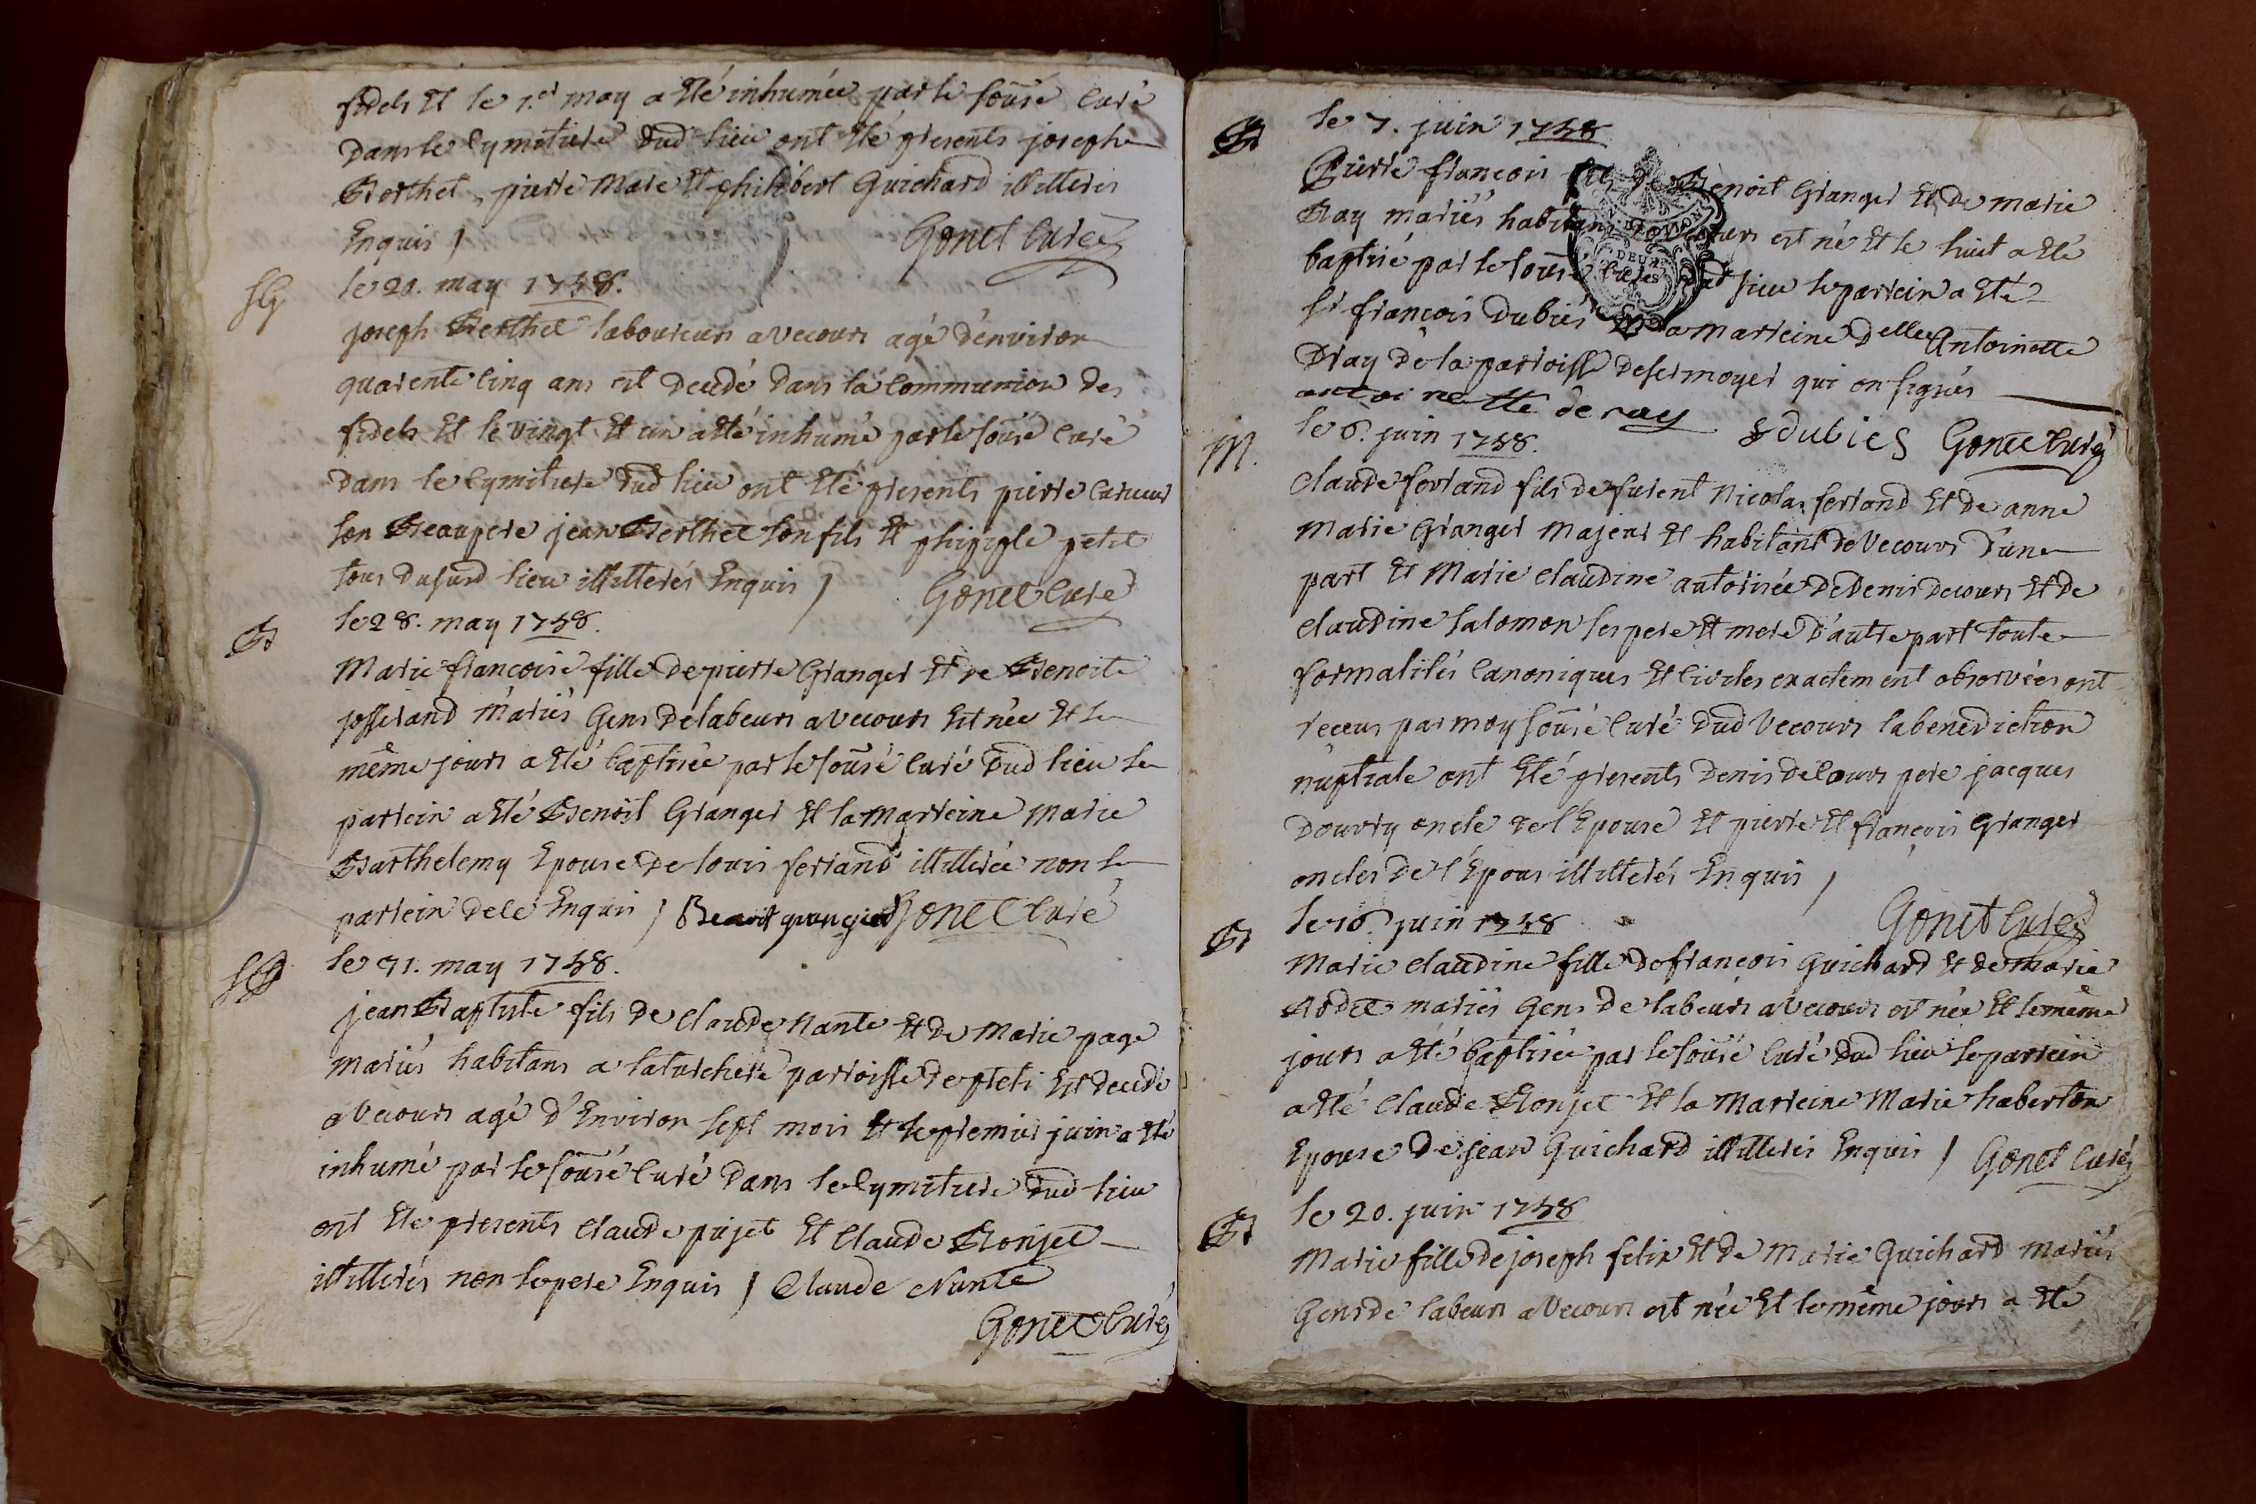 fidels Et le 1.er may a Eté inhumée par le sousé Curé
Dans le Cymetiere dud lieu ont Eté presents joseph
Berthet, pierre Mare Et philibert Guichard illiterés
Enquis / Gonet Curé
SG le 20. may 1758.
joseph Berthet laboureur a Vecours agé d'environ
quarente Cinq ans est Decedé Dans la Communion des
fidels Et le vingt Et un a Eté inhumé par le sousé Curé
Dans le Cymitiere dud lieu ont Eté presents pierre
son Beaupere jean Berthet son fils Et petit
tous dususd lieu illiterés Enquis / Gonet Curé
B le 28. may 1758.
Marie francoise fille de pierre Granger Et de Benoite
josserand Mariés Gens de labeurs a Vecours Est née Et le
même jours a Eté baptisée par le sousé Curé dud lieu le
parrein a Eté Benoit Granger Et la Marreine Marie
Barthelemy Epouse de louis ferrand illiterée non le
parrein de ce Enquis / Benoit grangier Gonet Curé
le 31. may 1758.
jean Baptiste fils de Claude Nante Et de Marie page
mariés habitans a paroisse de Est decedé
a Vecours agé d'Environ sept mois Et le premier juin a Eté
inhumé par le sousé Curé Dans le Cymitiere dud lieu
ont Ete presents Claude pujet Et Claude Bonjet
illiterés non le pere Enquis / Claude Nante
Gonet Curé
B le 7. juin 1758
Pierre francois fils de Benoit Granger Et de marie
Ray mariés habitans a Vecours est né Et le huit a Eté
baptisé par le sousé Curé dud lieu le parrein a Eté
Sr françois Dubies Et la Marreine Delle Antoinette
Dray de la parroisse desermoyer qui on signés
antoinette de ray
fdubies Gonet Curé
M. le 6. juin 1758.
Claude ferrand fils de furent Nicolas ferrand Et de anne
Marie Granger Majeur Et habitant de Vecours D'une
part Et Marie Claudine autorisée De Denis Decours Et De
Claudine Salomon ses pere Et mere D'autre part toute
formalités Canoniques Et Civiles exactement observées ont
receus par moy sousé Curé dud Vecours la benediction
nuptiale ont Eté presents Denis Decours pere jacques
oncle de l'Epouse Et pierre Et francois Granger
oncles De l'Epoux illiterés Enquis /
Gonet Curé
B le 16. juin 1758
Marie Claudine fille de françois Guichard Et de Marie
Bodet mariés Gens de labeurs a Vecours est née Et le même
jours a Eté baptisée par le sousé Curé dud lieu le parrein
a Eté Claude Bonjet Et la Marreine Marie haberton
Epouse De jean Guichard illiterés Enquis / Gonet Curé
B le 20. juin 1758
Marie fille de joseph felix Et de Marie Guichard mariés
Gens de labeurs a Vecours est née Et le même jours a Eté